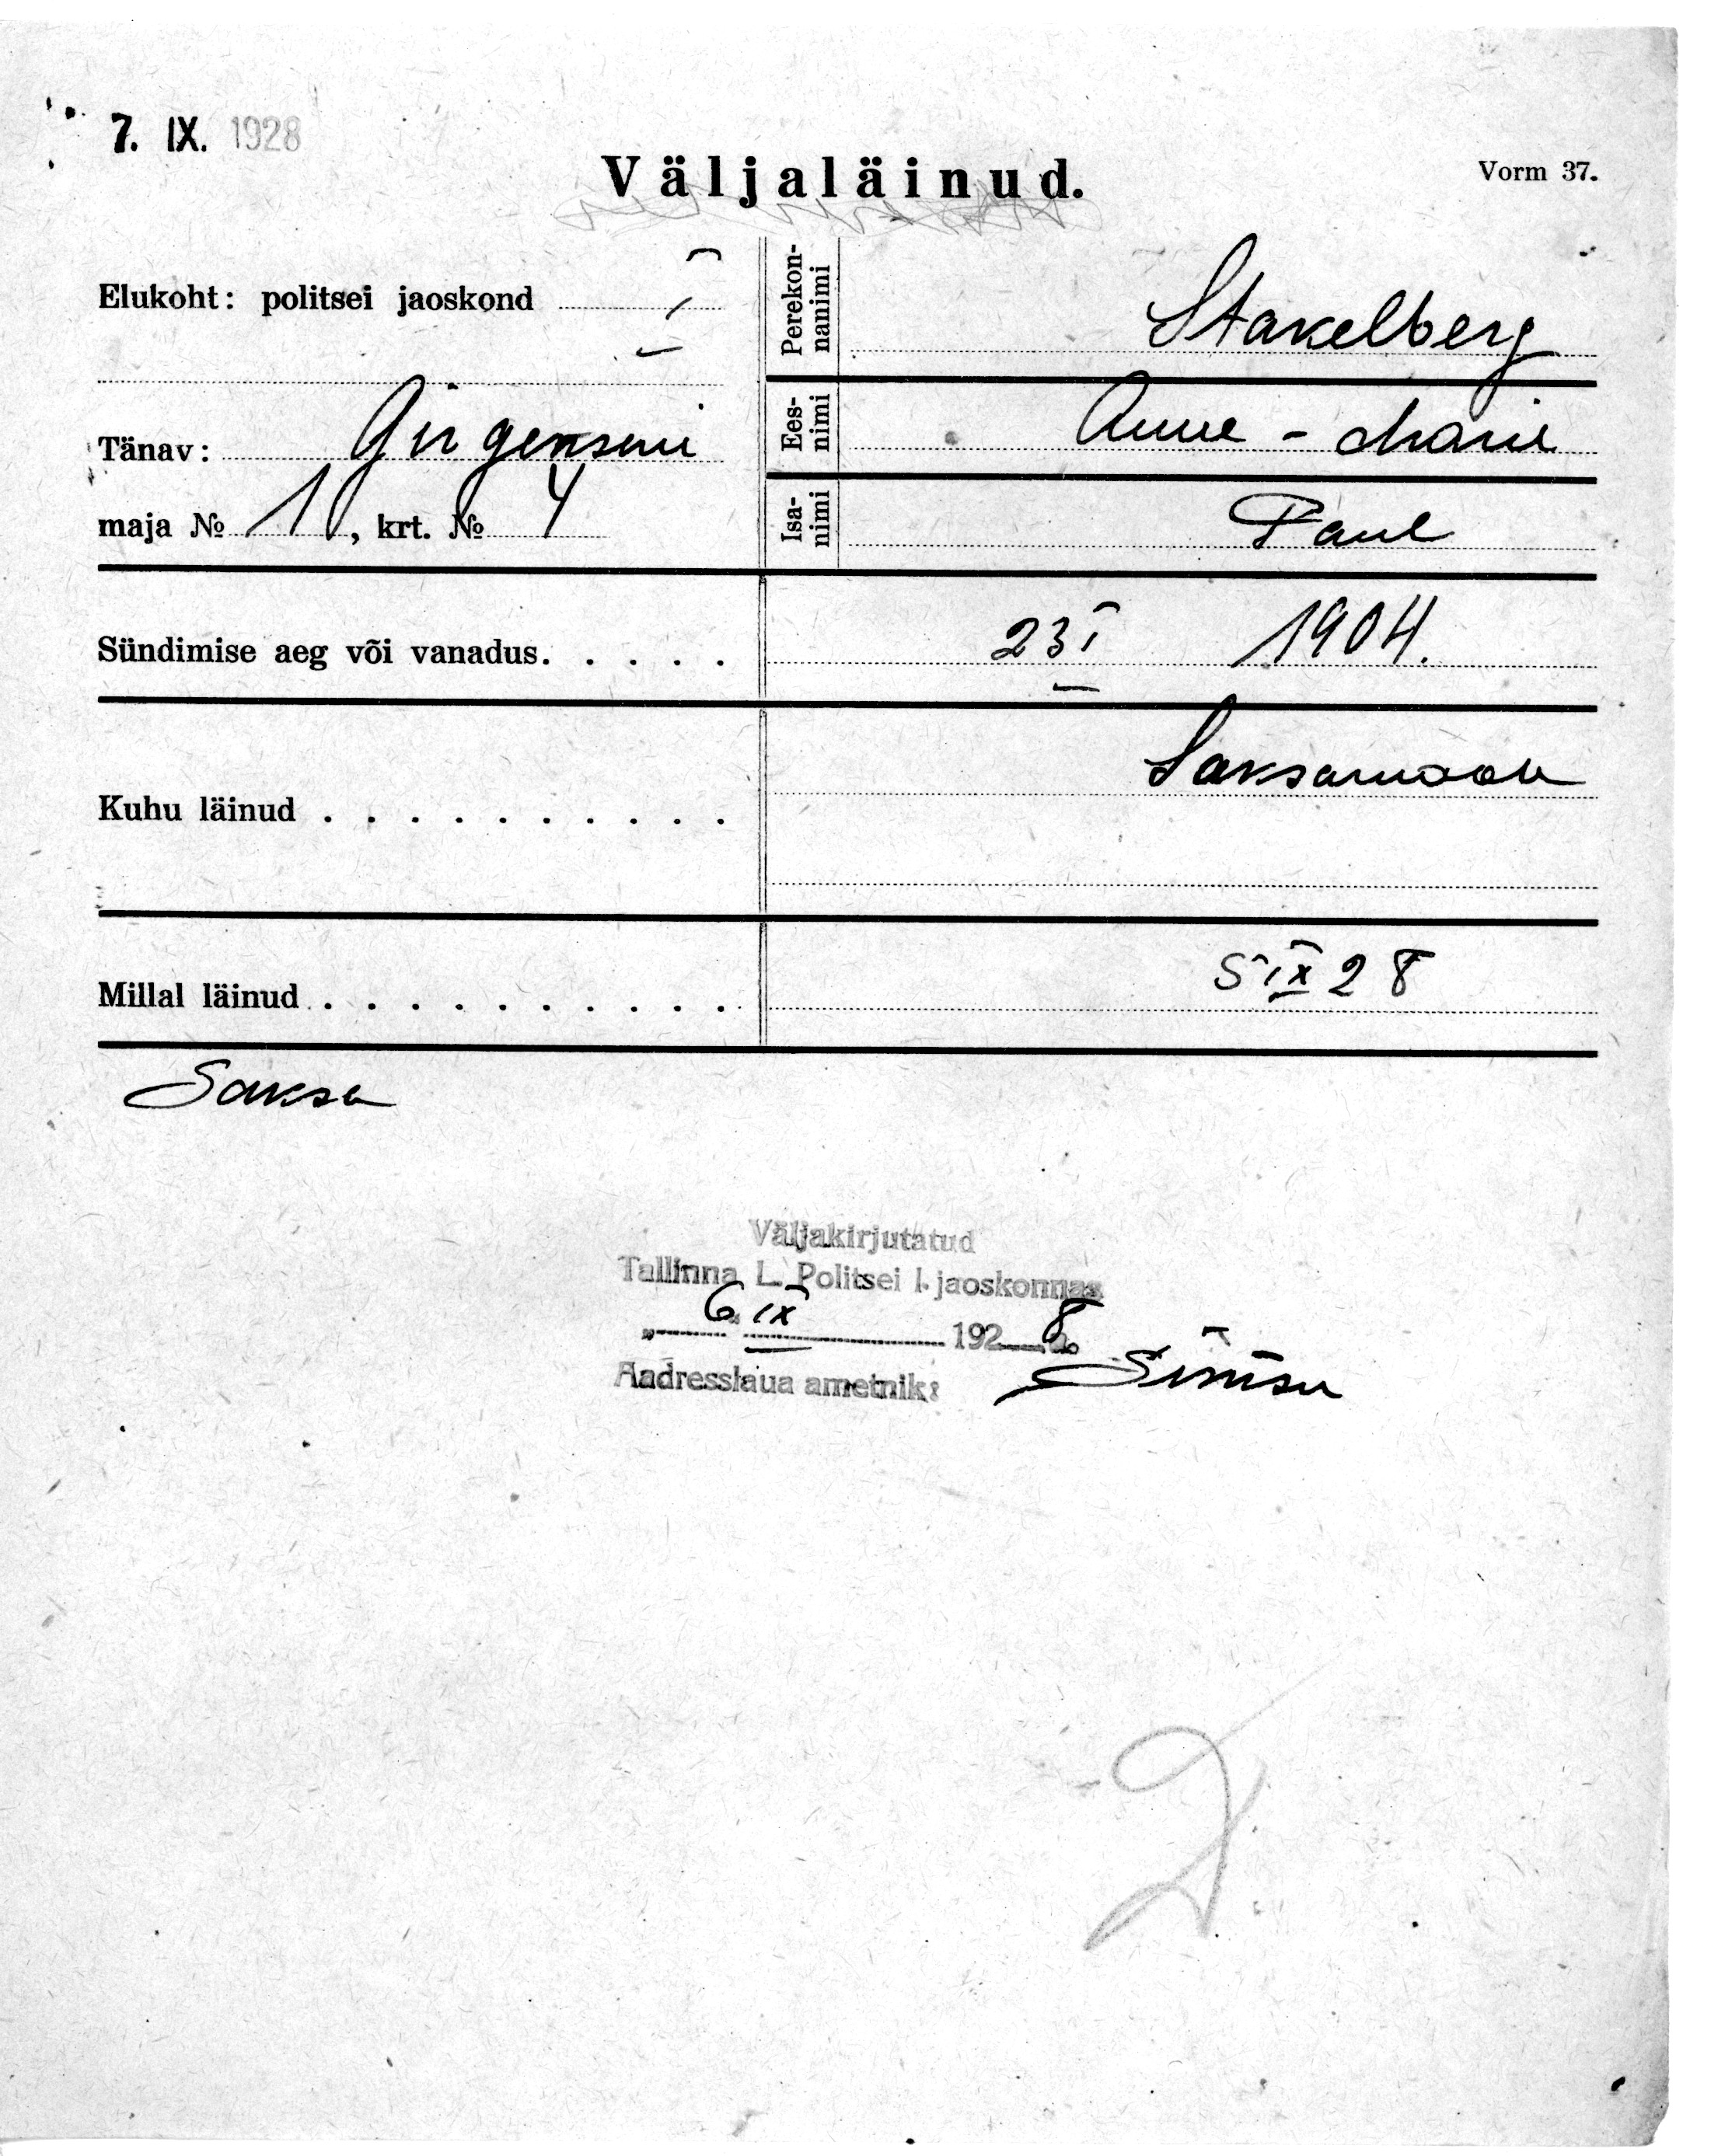 7. IX. 1928
Väljaläinud.
Vorm 37.
Elukoht: politsei jaoskond I
Perekon-
nanimi
Stakelberg
Tänav: Girgensoni
Ees-
nimi
Anne-Marie
maja № 1, krt. № 4
Isa-
nimi
Paul
Sündimise aeg või vanadus. . . . . 23 I 1904.
Kuhu läinud . . . . . . . . . . Saksamaale
Millal läinud . . . . . . . . . . 5 IX 28
Saksa
Väljakirjutatud
Tallinna L. Politsei I. jaoskonnas
„ 6. IX 1928 a.
Aadresslaua ametnik: